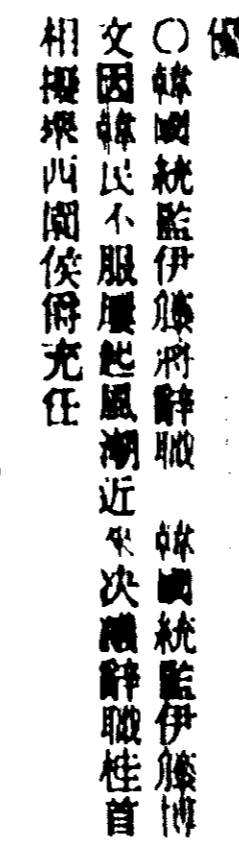 〇韓國統監伊藤將辭職　韓國統監伊藤博
文因韓民不服屢起風潮近來决議辭職桂首
相擬舉西園侯爵充任